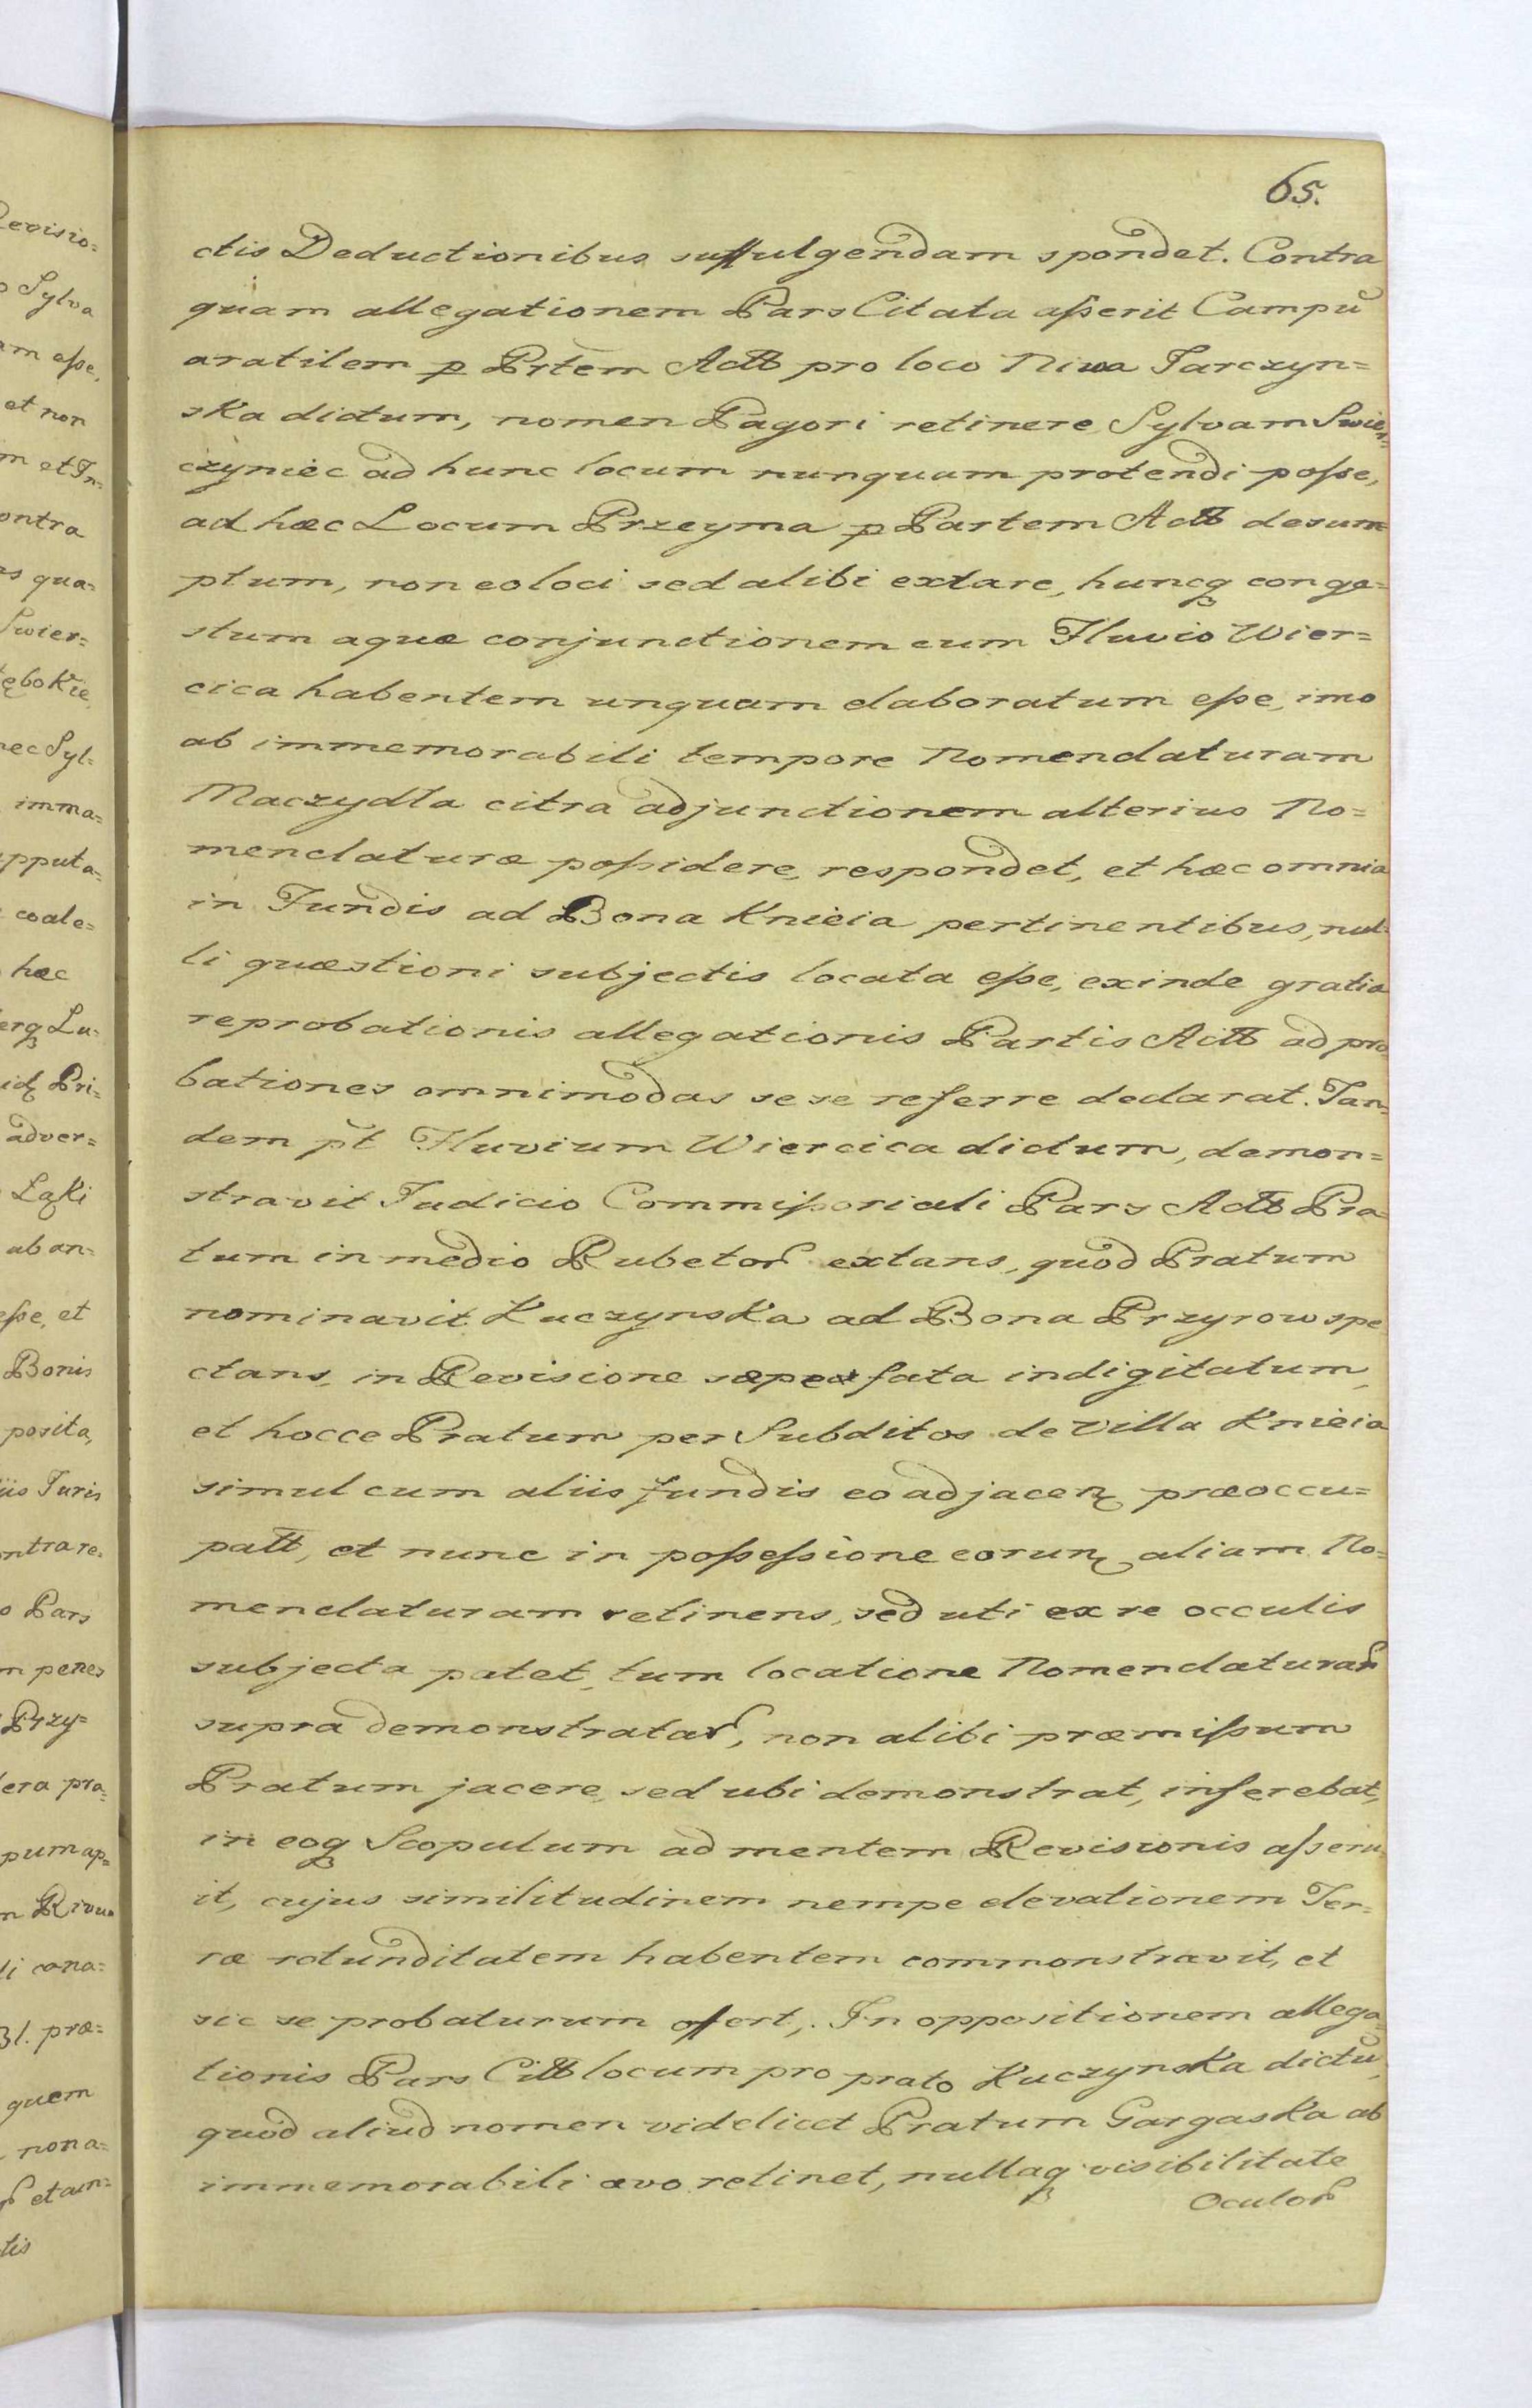 65.
ctis Deductionibus suffulgendam spondet. Contra
quam allegationem Pars Citata asserit Campũ
aratilem p Prtem Actt pro loco Niwa Tarczyn=
ska dictum, nomen Pagori retinere, Sylvam Swier=
czyniec ad hunc locum nunquam protendi posse,
ad hæc Locum Przeyma p Partem Actt desum=
ptum, non eo loci sed alibi extare, huncq conge=
stum aquæ conjunctionem cum Fluvio Wier=
cica habentem unquam elaboratum esse, imo
ab immemorabili tempore Nomenclaturam
Maczydła citra adjunctionem alterius No=
menclaturæ possidere, respondet, et hæc omnia
in Fundis ad Bona Knieia pertinentibus, nul=
li quæstioni subjectis locata esse, exinde gratia
reprobationis allegationis Partis Actt ad pro
bationes omnimodas sese referre declarat. Tan=
dem p̃t Fluvium Wiercica dictum, demon=
stravit Judicio Commissoriali Pars Actt Pra=
tum in medio Rubetor extans, quod Pratum
nominavit Kuczynska ad Bona Przyrow spe
ctans, in Revisione sæpefata indigitatum,
et hocce Pratum per Subditos de Villa Knieia
simul cum aliis fundis eo adjacen præoccu=
patt, et nunc in possessione eorun aliam No=
menclaturam retinens, sed uti ex re occulis
subjecta patet, tum locatione Nomenclaturar
supra demonstratar, non alibi præmissum
Pratum jacere, sed ubi demonstrat, inferebat,
in eoq Scopulum ad mentem Revisionis asseru
it, cujus similitudinem nempe elevationem Ter=
ræ rotunditatem habentem commonstravit, et
sic se probaturum offert,. In oppositionem allega=
tionis Pars Citt locum pro prato Kuczynska dictũ,
quod aliud nomen videlicet Pratum Gargaska ab
immemorabili ævo retinet, nullaq visibilitate
Oculor